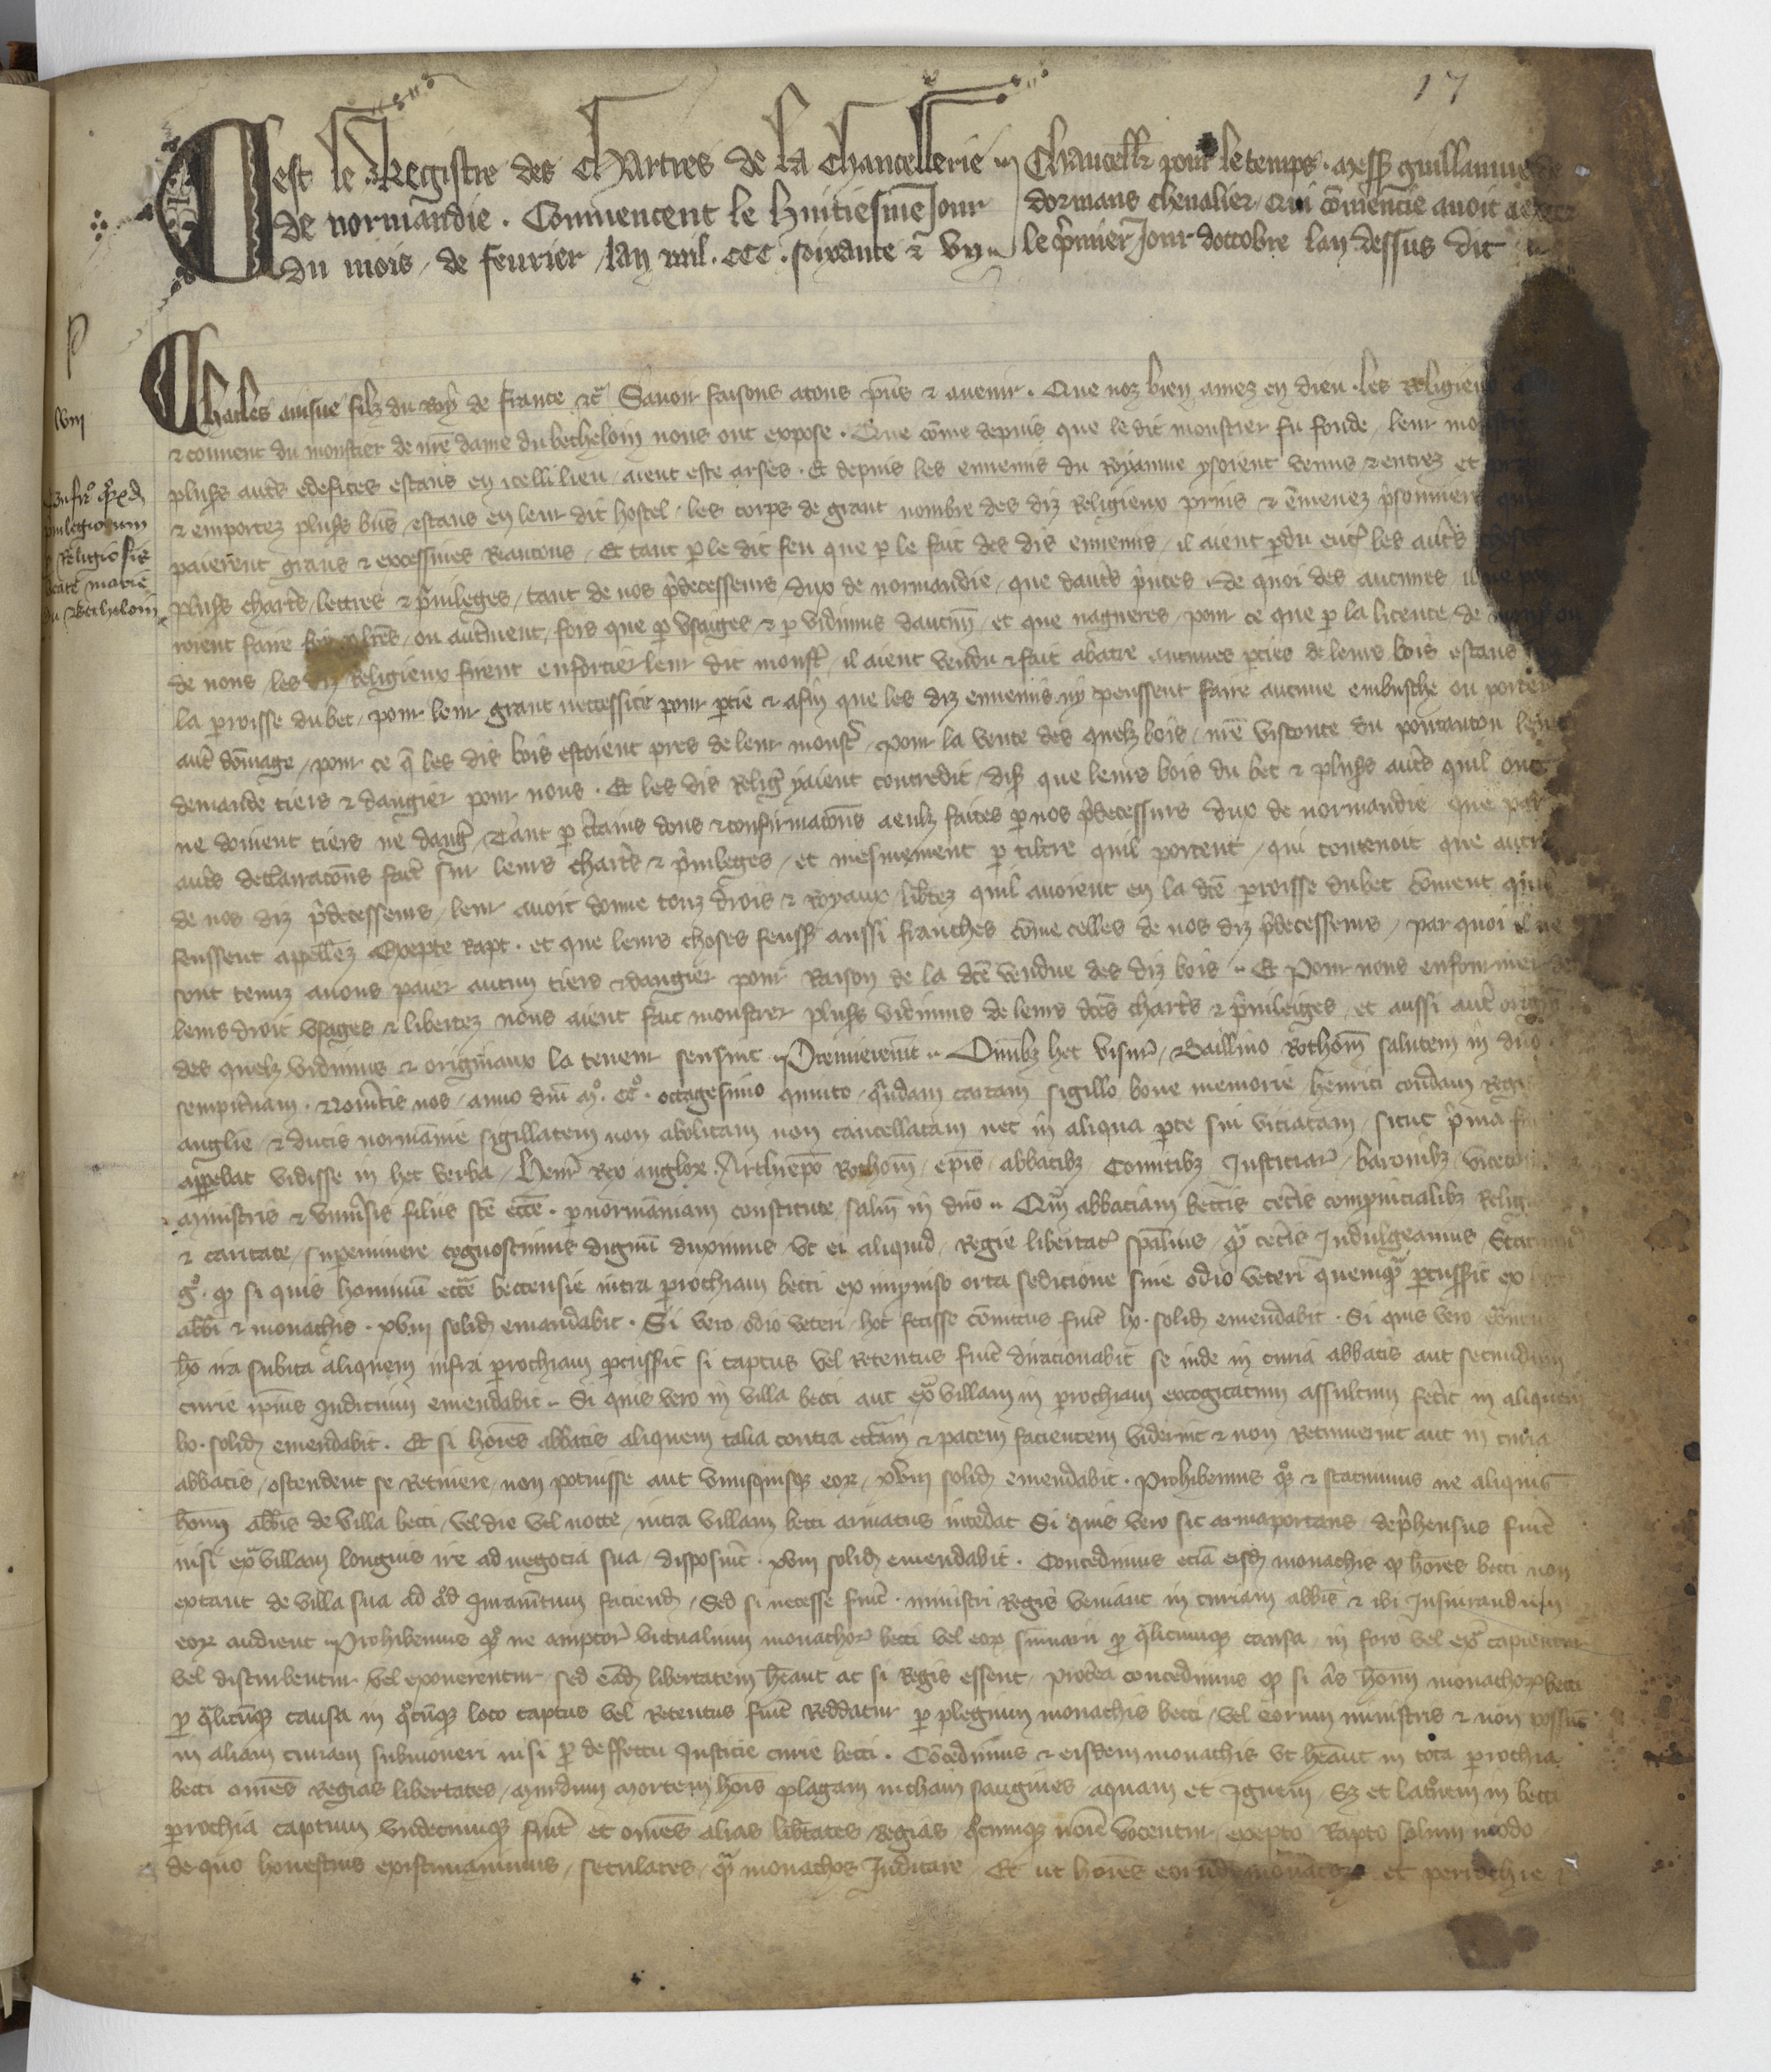 17
Cest le Registre des Chartres de la Chancellerie
de normandie . Commencent le huitiesme Jour
du mois de feurier lan mil . ccc . soixante & vij
Chancell' pour le temps . mess' guillaume de
dormans cheualier Qui cõmencie auoit
le p'mier Jour doctobre lan dessus dit
viij
priuilegiorum
Religiosis
beate marie
du Becheloin
Charles ainsne filz du Roy de france &c̃ Sauoir faisons atous p̃ns & auenir . Que noz bien amez en dieu . les Religieux
& couuent du monstier de nr̃e dame du becheloin nous ont expose . Que cõme depuis que le dit monstier fu fonde leur
plus's aut's edefices estans en icelli lieu aient este arses . Et depuis les ennemis du Royaume ysoient venus & entrez et
& emportez plus's biẽs estans en leur dit hostel les corps de grant nombre des diz Religieux prins & ẽmenez p'sonniers
paierent grans & excessiues Raancons Et tant p le dit feu que p le fait des dis ennemis il aient p̃du les aut's choses
plus's chart's lettres & p'uileges tant de nos p'decesseurs dux de normandie que daut's p'nces . de quoi des aucunes il
roient faire foy ou aut'ment fors que p vsaiges & p vidimus daucun et que nagueres pour ce que p la licence de
de nous les diz Religieux firent enforcier leur dit monst' il aient vendu & fait abatre aucunes p'ties de leurs bois estans
la p'roisse du bec pour leur grant neccessite pour p'tie & afin que les diz ennemis ny peussent faire aucune embusche ou porter
aut' dõmage pour ce q̃ les dis bois estoient pres de leur monst' pour la vente des quelz bois nr̃e viconte du pontautou leur
demande tiers & dangier pour nous . Et les dis Relig' yaient contredit dis' que leurs bois du bec & plus's aut's quil ont
ne doiuent tiers ne dang' Tant p c'tains dons & confirmacõns a eulz faites p nos p'decessurs dux de normandie que par
aut's declaracõns fait' sur leurs chart's & p'uileges et mesmement p tiltre quil portent qui contenoit que
de nos diz p'decesseurs leur auoit donne touz drois & Royaux lib'tez quil auoient en la dc̃e p'roisse du bec cõment quil
feussent appellez Excepte Rapt . et que leurs choses feuss' aussi franches cõme celles de nos diz p'decesseurs par quoi il ne
sont tenuz anous paier aucun tiers & dangier pour Raison de la dc̃e vendue des diz bois Et Pour nous enfourmer de
leurs droit vsages & libertez nous aient fait monstrer plus's vidimus de leurs dc̃es chart's & p'uileiges et aussi aut'
des quelz vidimus & originaux la teneur sensuit Premierem̃t Om̃ibz hec visur' Baillius Rothom̃ salutem in dño
sempit'nam . Nou'itis nos anno dñi mº . ccº . octogesimo quinto q'ndam cartam sigillo bone memorie henrici condam Regis
anglie & ducis normãnie sigillatam non abolitam non cancellatam nec in aliqua p'te sui viciatam sicut p'ma
app'ebat vidisse in hec verba Henr' Rex anglor' Archiep̃o Rothom̃ ep̃is abbatibz Comitibz Justiciar' baronibz vicecom
Ministris & vniu'sis filiis sc̃e ecc̃e . p normãniam constitutis salt̃m in dño Qm̃ abbaciam beccis cet'is comp'uincialibz Relig
& caritate sup'eminere cognoscimus dignũ duximus vt ei aliquid Regie libertat' sp̃alius q̃ cet'is Indulgeamus
gº . q si quis hominũ ecc̃e beccensie intra p'rochiam becci ex inp'uiso orta sedicione siue odio veteri quemq̃ p'cussit ex
abb̃i & monachis . xviij solid' emandabit . Si vero odio veteri hoc fecisse cõuictus fu'it lx . solid' emendabit . Si quis vero
ira subita aliquem infra p'rochiam p'cussit si captus vel Retentus fu'it diracionabit se inde in curia abbatis aut secundum
curie ip̃ius Judicium emendabit . Si quis vero in villa becci aut ext̃ villam in p'rochiam excogitatum assultum fec'it in aliquem
lx . solid' emendabit . Et si hoĩes abbatis aliquem talia contra ecc̃iam & pacem facientem viderint & non Retinuerint aut in curia
abbatis ostendent se Retinere non potuisse aut vnusquisqz eor' xviij solid' emendabit . Prohibemus qº & statuimus ne aliquis
hom̃ abb̃is de villa becci vel die vel nocte intra villam becci armatus incedat Si quis vero sic arma portans dep'hensus fu'it
nisi ext̃ villam longius ire ad negocia sua disposu'it . xviij solid' emendabit . Concedimus eciã eisd' monachis q hoĩes becci non
exeant de villa sua ad aliud Juram̃tum faciend' Sed si necesse fu'it . ministri Regis veniant in curiam abb̃is & ibi Jusiurandum
eor' audient Prohibemus qº ne emptor' victualium monachor' becci vel eor' sum̃arii p q'licumqz causa in foro vel ext̃ capientur
vel disturbentur vel exonerentur sed eãd' libertatem hẽant ac si Regis essent p'terea concedimus q si q's hom̃ monachor' becci
p q'licũqz causa in q'cũqz loco captus vel Retentus fu'it Reddatur p plegium monachis becci vel eorum ministris & non possũt
in aliam curiam submoneri nisi p deffectu Justicie curie becci . Cõcedimus & eisdem monachis vt hẽant in tota p'rochia
becci om̃es Regias libertates murdrum mortem hoĩs plagam mehaim sanguines aquam et Jgnem Sz et latronem in becci
p'rochia captum vndecumqz fu'it et om̃es alias lib'tates Regias q'cumqz noĩe vocentur excepto Rapto solum modo
de quo honestius existimauimus seculares q̃ monachos Judicare Et ut hoĩes et perrochie &